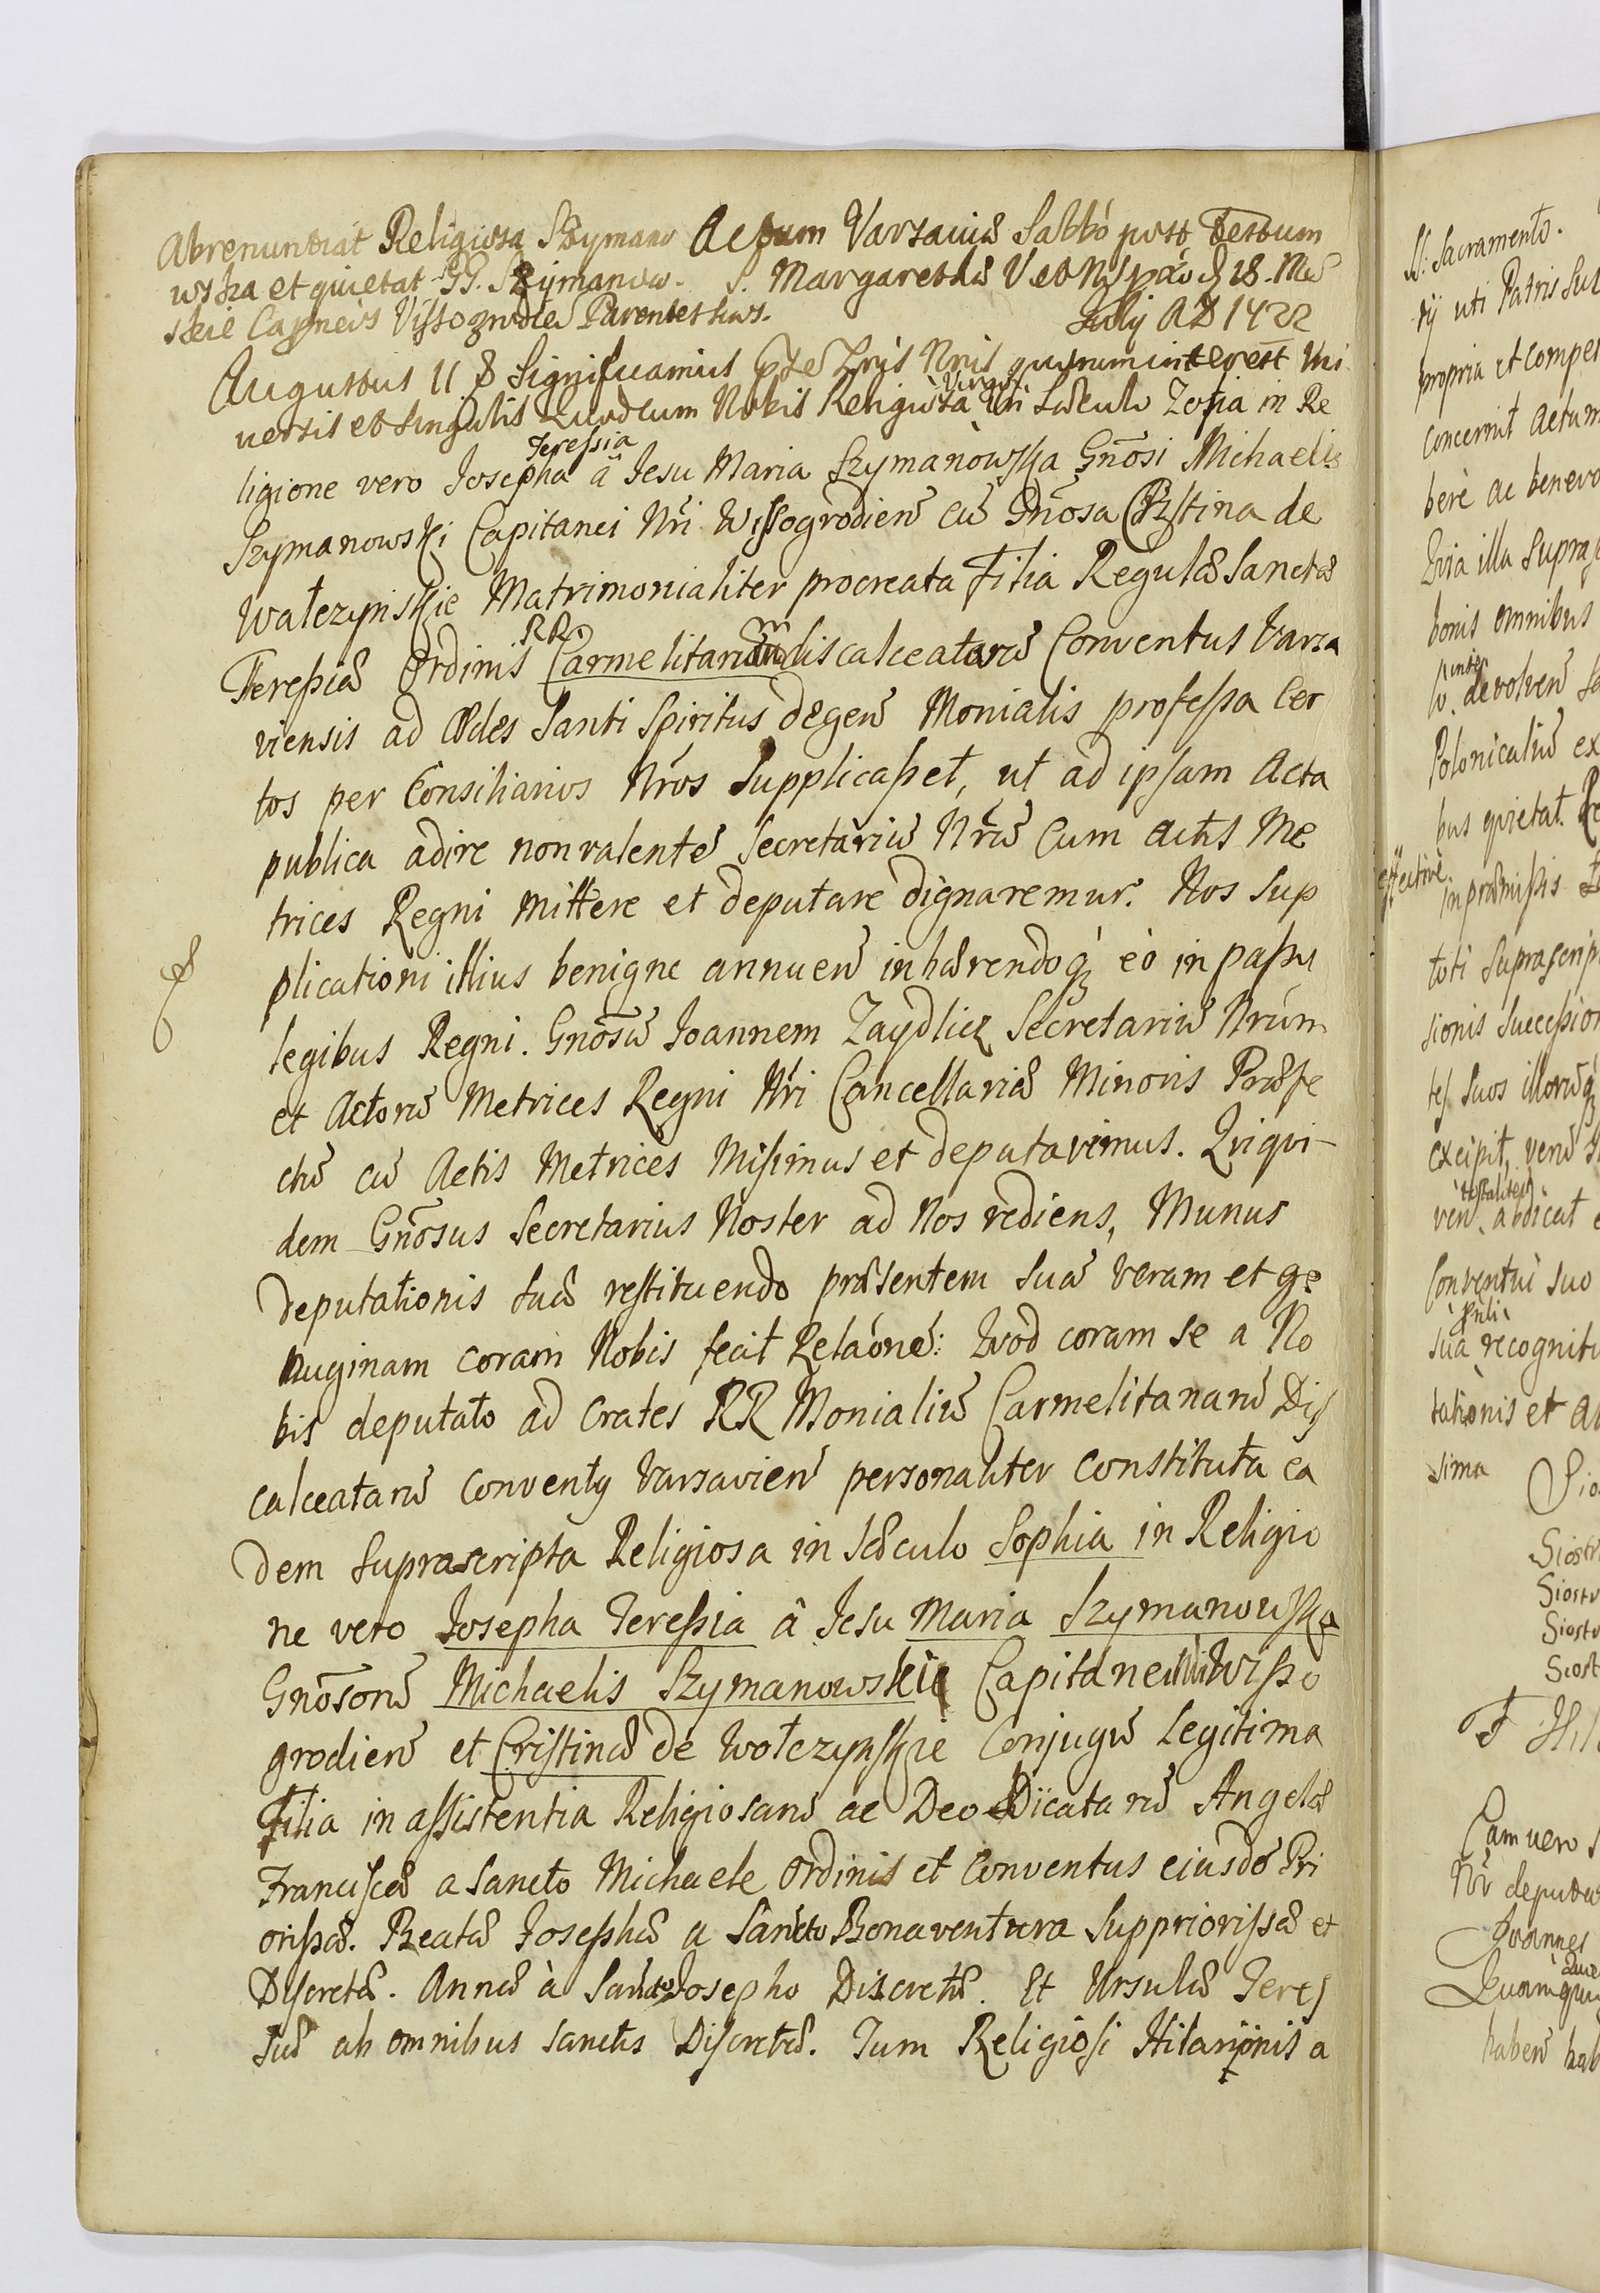 Abrenuntiat Religiosa Szymano
wska et quietat GG. Szymanow
skie Capneos Vissogrodien Parentes suos.
Actum Varsaviæ Sabbo post Festum
S. Margarethæ V et M
July AD 1722
Augustus II Significamus quorum interest Vni
versis et singulis Quod cum Nobis Religiosa Virgo in sæculo Zofia in Re
ligione vero Josepha Teressia â Jesu Maria Szymanowska Gnõsi Michaelis
Szymanowski Capitanei Nri Wissogrodien cũ Gnõsa Crystina de
Wałczynskie Matrimonialiter procreata Filia Regulæ Sanctæ
Teressiæ Ordinis RR. Carmelitarum discalceatarũ Conventus Varsa
viensis ad Ædes Santi Spiritus degen Monialis professa cer
tos per Consiliarios Nros Supplicasset, ut ad ipsam Acta
publica adire non valentẽ Secretariũ Nrũ cum actis Me
trices Regni mittere et deputare dignaremur. Nos Sup
plicationi illius benigne annuen inhærendoq3 eò in passu
legibus Regni. Gnõsũ Joannem Zaydlicz Secretariũ Nrum
et Actorũ Metrices Regni Nri Cancellariæ Minoris Præfe
ctũ cũ Actis Metrices Misimus et deputavimus. Qviqvi-
dem Gnõsus Secretarius Noster ad Nos rediens, Munus
deputationis suæ restituendo præsentem suã veram et ge
nuginam coram Nobis fecit Relãonẽ: Qvod coram se a No
bis deputato ad Crates RR Monialiũ Carmelitanarũ Dis
calceatarũ Conventus Varsavien personaliter constituta ea
dem suprascripta Religiosa in Sæculo Sophia in Religio
ne vero Josepha Teressia â Jesu Maria Szymanowska
Gnõsorũ Michaelis Szymanowskie Capitanei Nri Wisso
grodien et Cristinæ de Wołczynskie Conjugũ Legitima
Filia in assistentia Religiosarũ ac Deo Dicatarũ Angelæ
Franciscæ a Sancto Michaele Ordinis et Conventus eiusdẽ Pri
orissæ. Beatæ Josephæ a Sancto Bonaventura Suppriorissæ et
Discretæ. Annæ à Sancto Josepho Discretæ. Et Ursulæ Teres
siæ ab omnibus Sanctis Discretæ. Tum Religiosi Hilarionis a
SS: Sacramento.
rij uti Patris sui
propria et compet
concernit Actum
berè ac benevo
Qvia illa supra
bonis omnibus
devolven
Polonicaliũ ex
bus qvietat. Re
effective
in præmissis et
toti suprascrip
sionis Successior
tes suos illorũq3
excipit, verũ
totaliter
ven abdicat e
Conventui suo
sua recognitu
tationis et a
sima
Siostr
Siostr
Siostr
Siost
F Hil
Cam vero
Nr deputa
Joannes
Qvam qui
haben hab